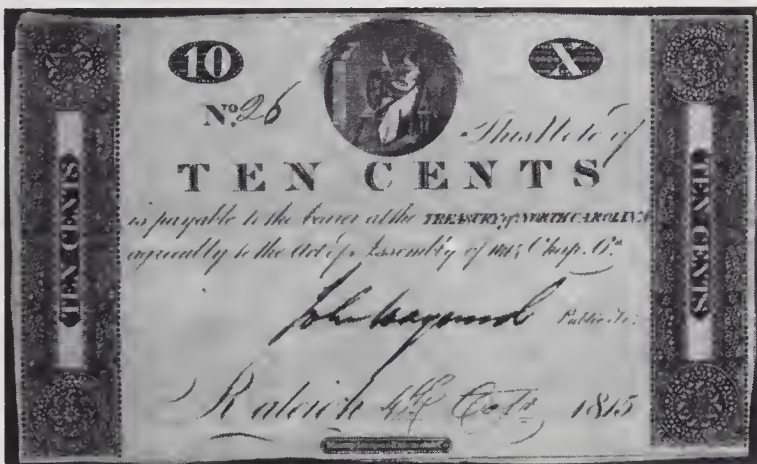 10
X
No. 26
This Note of
TEN CENTS
is payable to the bearer at the TREASURY of NORTH CAROLINA
agreeably to the Act of Assembly of Chap.
John Haywood Public Tr:
Raleigh 4th Octr 1815
TEN CENTS
TEN CENTS